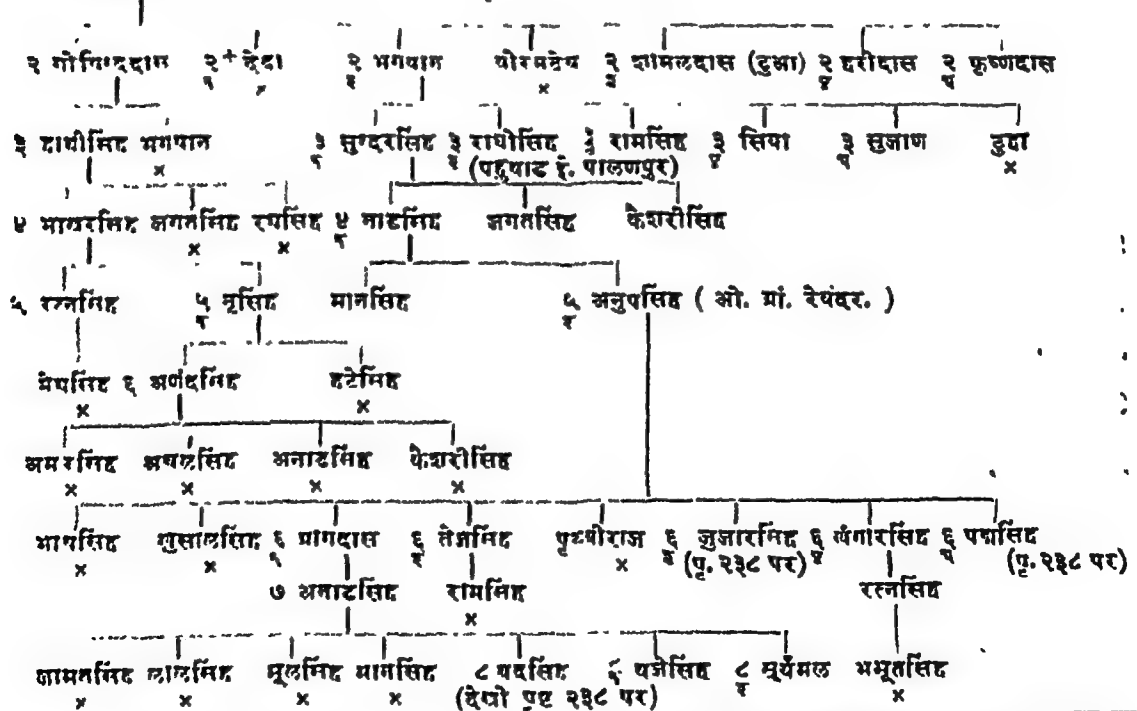 २ गोविन्ददास २/१ + देदा २/२ भगवान वीरमदेव २/३ शामलदास (दुआ) २/४ हरीदास २/५ कृष्णदास
३ हाथीसिंह भगवान ३/१ सुन्दरसिंह ३/२ राधोसिंह ३/३ रामसिंह ३/४ सिवा ३/५ सुजाण दुदा
× (पडुवाट इ. पालणपुर) ×
४ भाखरसिंह जगतसिंह रूपसिंह ४/१ नाहसिंह जगतसिंह केशरीसिंह
× ×
५ रत्नसिंह ५/१ नृसिंह मानसिंह ५/२ अनुपसिंह ( ओ. ग्रां. रेवंदर. )
मेघसिंह ६ अणंदसिंह हटेसिंह
× ×
अमरसिंह अचलसिंह अनाडसिंह केशरीसिंह
× × × ×
भावसिंह खुसालसिंह ६/१ प्रागदास ६/२ तेजसिंह पृथ्वीराज ६/३ जुजारसिंह ६/४ खंगारसिंह ६/५ पद्मसिंह
× × × (पृ. २३८ पर) (पृ. २३८ पर)
७ अनाडसिंह रामसिंह रत्नसिंह
×
सामतसिंह लालसिंह मूलसिंह मानसिंह ८ वदसिंह ८/१ वजेसिंह ८/२ सूर्यमल भभूतसिंह
× × × × (देखो पृष्ट २३८ पर) ×